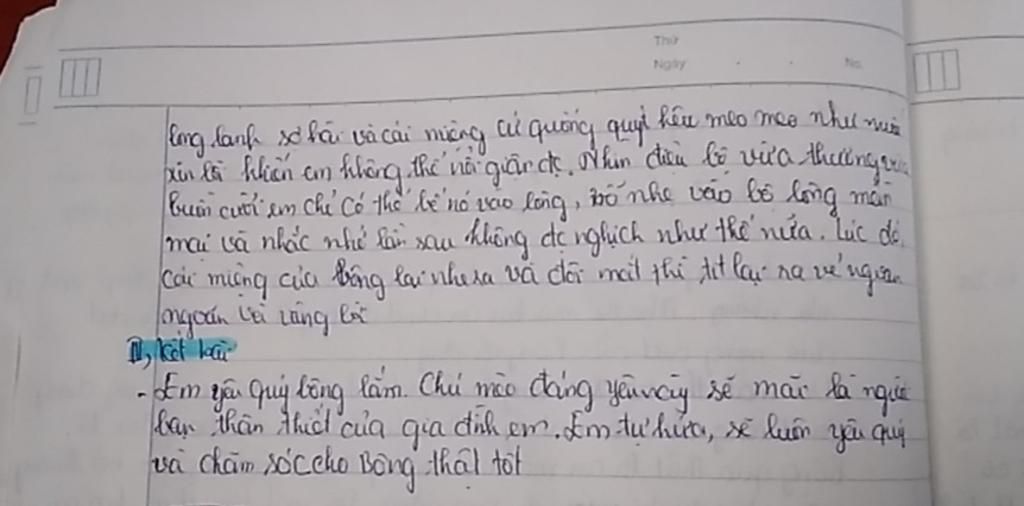 Thứ
Ngày
No
long lanh sợ hãi và cái miệng cứ quống quýt kêu meo meo như muốn
xin lỗi khiến em không thể nổi giận đc. Nhìn điệu bộ vừa thương vừa
buồn cười em chỉ có thể bế nó vào lòng, vỗ nhẹ vào bộ lông mền
mại và nhắc nhở lần sau không đc nghịch như thế nữa. Lúc đó,
cái miệng của Bông lại nhe ra và đôi mắt thì tít lại ra vẻ ngoan
ngoãn và vâng lời
kết bài
- Em yêu quý bông lắm. Chú mèo đáng yêu này sẽ mãi là người
bạn thân thiết của gia đình em. Em tự hứa, sẽ luôn yêu quý
và chăm sóc cho Bông thật tốt